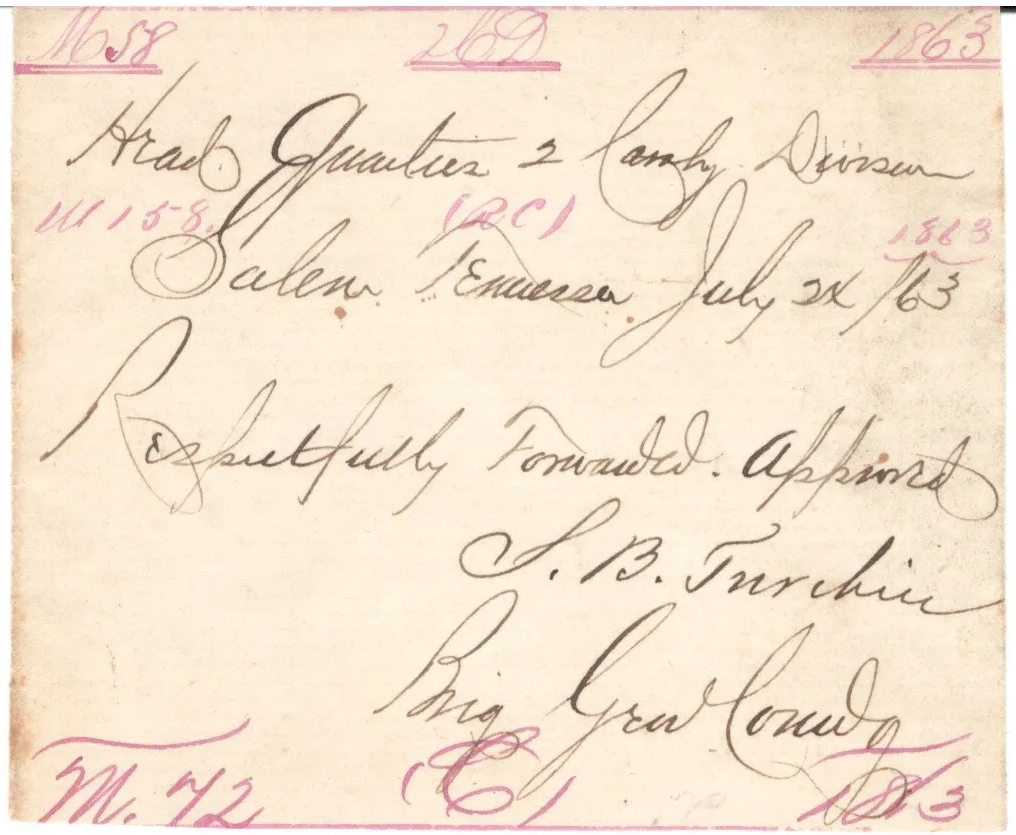 M 58 2CD 1863
Head Quarters 2 Cavly Division
M 158. (RC) 1863
Salem Tennessee July 2x /63
Respectfully Forwarded. Approved
J. B. Turchin
Brig Genl Comdg
M. 72 (C) 1863